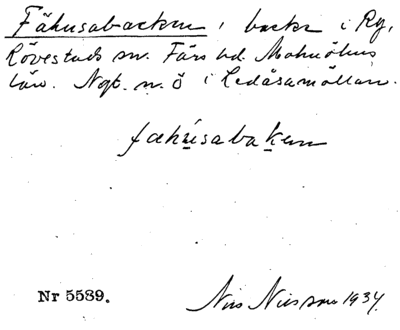 Fähusabacken, backe i Rg,
Lövestads sn. Färs hd. Malmöhus
län. Ngt. n. ö i Ledåsamöllan.
fahúsabaken
Nr 5589.
Nils Nilsson 1934.